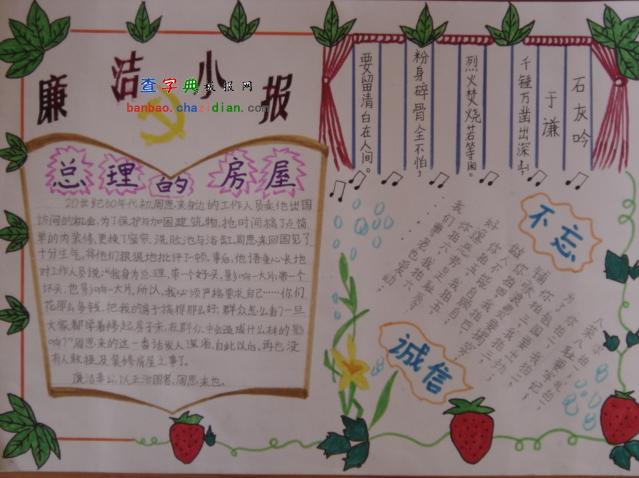 廉洁小报
查字典教报网
banbao.chazidian.com
总理的房屋
20世纪60年代初,周恩来身边的工作人员乘他出国
访问的机会,为了保护与加固建筑物,抢时间搞了点简
单的内装修,更换了窗帘、洗脸池与浴缸。周恩来回国见了
十分生气,将他们狠狠地批评了一顿,事后,他语重心长地
对工作人员说:"我身为总理,带一个好头,影响一大片;带一个
坏头,也影响一大片。所以,我必须严格要求自己……你们
花那么多钱,把我的房子搞得那么好,群众怎么看?一旦
大家都学着修起房子来,在群众中会造成什么样的影
响?"周恩来的这一番话发人深省,自此以后,再也没
有人敢提及装修房屋之事了。
廉洁奉公,以正治国者,周恩来也。
石灰吟
于谦
千锤万凿出深山
烈火焚烧若等闲。
粉身碎骨全不怕,
要留清白在人间。
不忘
诚信